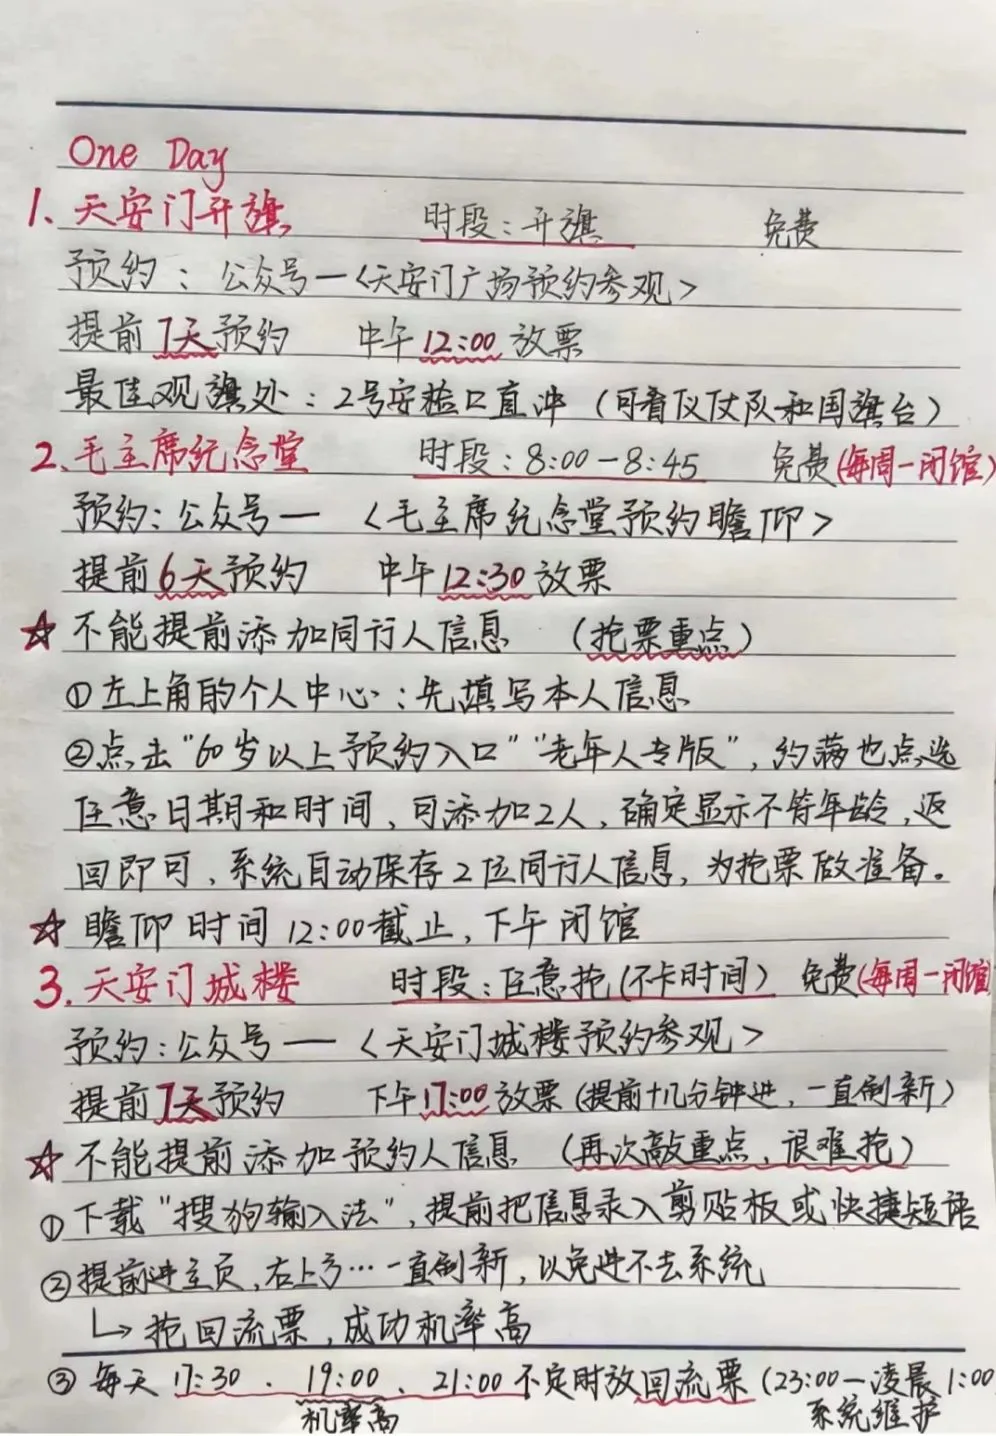 One Day
1、天安门升旗 时段：升旗 免费
预约：公众号—<天安门广场预约参观>
提前7天预约 中午12:00放票
最佳观旗处：2号安检口直冲（可看仪仗队和国旗台）
2、毛主席纪念堂 时段：8:00—8:45 免费(每周一闭馆)
预约：公众号— <毛主席纪念堂预约瞻仰>
提前6天预约 中午12:30放票
☆ 不能提前添加同行人信息 （抢票重点）
①左上角的个人中心：先填写本人信息
②点击“60岁以上预约入口”“老年人专版”，约满也点选
任意日期和时间，可添加2人，确定显示不符年龄，返
回即可，系统自动保存2位同行人信息，为抢票做准备。
☆ 瞻仰时间12:00截止，下午闭馆
3.天安门城楼 时段：任意抢(不卡时间) 免费(每周一闭馆)
预约：公众号—<天安门城楼预约参观>
提前7天预约 下午17:00放票(提前十几分钟进，一直刷新)
☆ 不能提前添加预约人信息 （再次敲重点，很难抢）
①下载“搜狗输入法”，提前把信息录入剪贴板或快捷短语
②提前进主页，右上方…一直刷新，以免进不去系统
↳抢回流票，成功机率高
③每天17:30、19:00、21:00不定时放回流票(23:00—凌晨1:00
机率高 系统维护